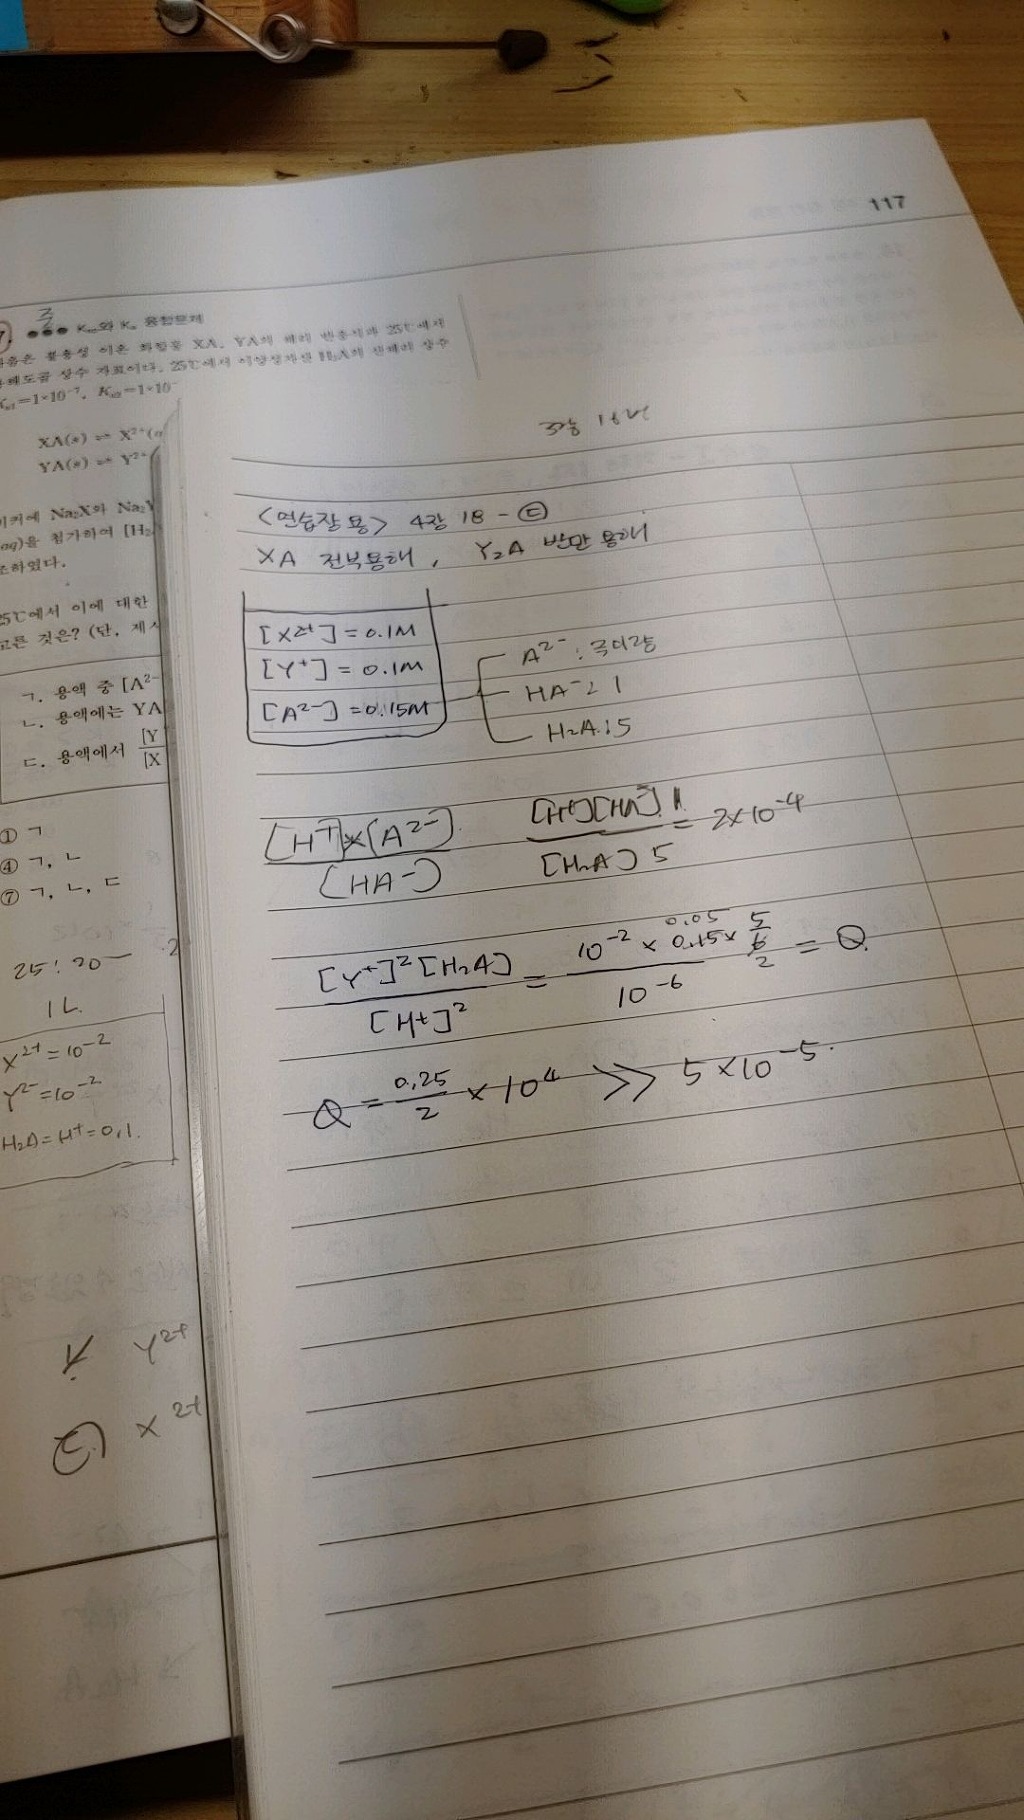 117
Ksp와 Ka 융합문제
XA, YA의 해리 반응식과 25℃에서
25℃에서 이양성자산 H₂A의 산해리 상수
Ka1=1×10⁻⁷, Ka2=1×10⁻
XA(s) ⇌ X²⁺(a
YA(s) ⇌ Y²⁺
Na₂X와 Na₂Y
aq)을 첨가하여 [H₂
조하였다.
25℃에서 이에 대한
고른 것은? (단, 제시
ㄱ. 용액 중 [A²⁻
ㄴ. 용액에는 YA
ㄷ. 용액에서 [Y
[X
① ㄱ
④ ㄱ, ㄴ
⑦ ㄱ, ㄴ, ㄷ
25: 20
1L
X²⁺=10⁻²
Y²⁻=10⁻²
H₂A=H⁺=0.1.
Y²⁺
ㄷ) X²⁺
<연습장용> 4장 18 - ㉢
XA 전부용해, Y₂A 반만 용해
[X²⁺] = 0.1M
[Y⁺] = 0.1M
[A²⁻] = 0.15M
A²⁻ : 극미량
HA⁻: 1
H₂A: 5
[H⁺]×[A²⁻]
[HA⁻]
[H⁺][HA⁻] 1
[H₂A] 5
= 2×10⁻⁴
[Y⁺]²[H₂A]
[H⁺]²
= 10⁻² × 0.15 × 5/6
0.05
2
10⁻⁶
= Q
Q = 0.25/2 × 10⁴ ≫ 5×10⁻⁵.